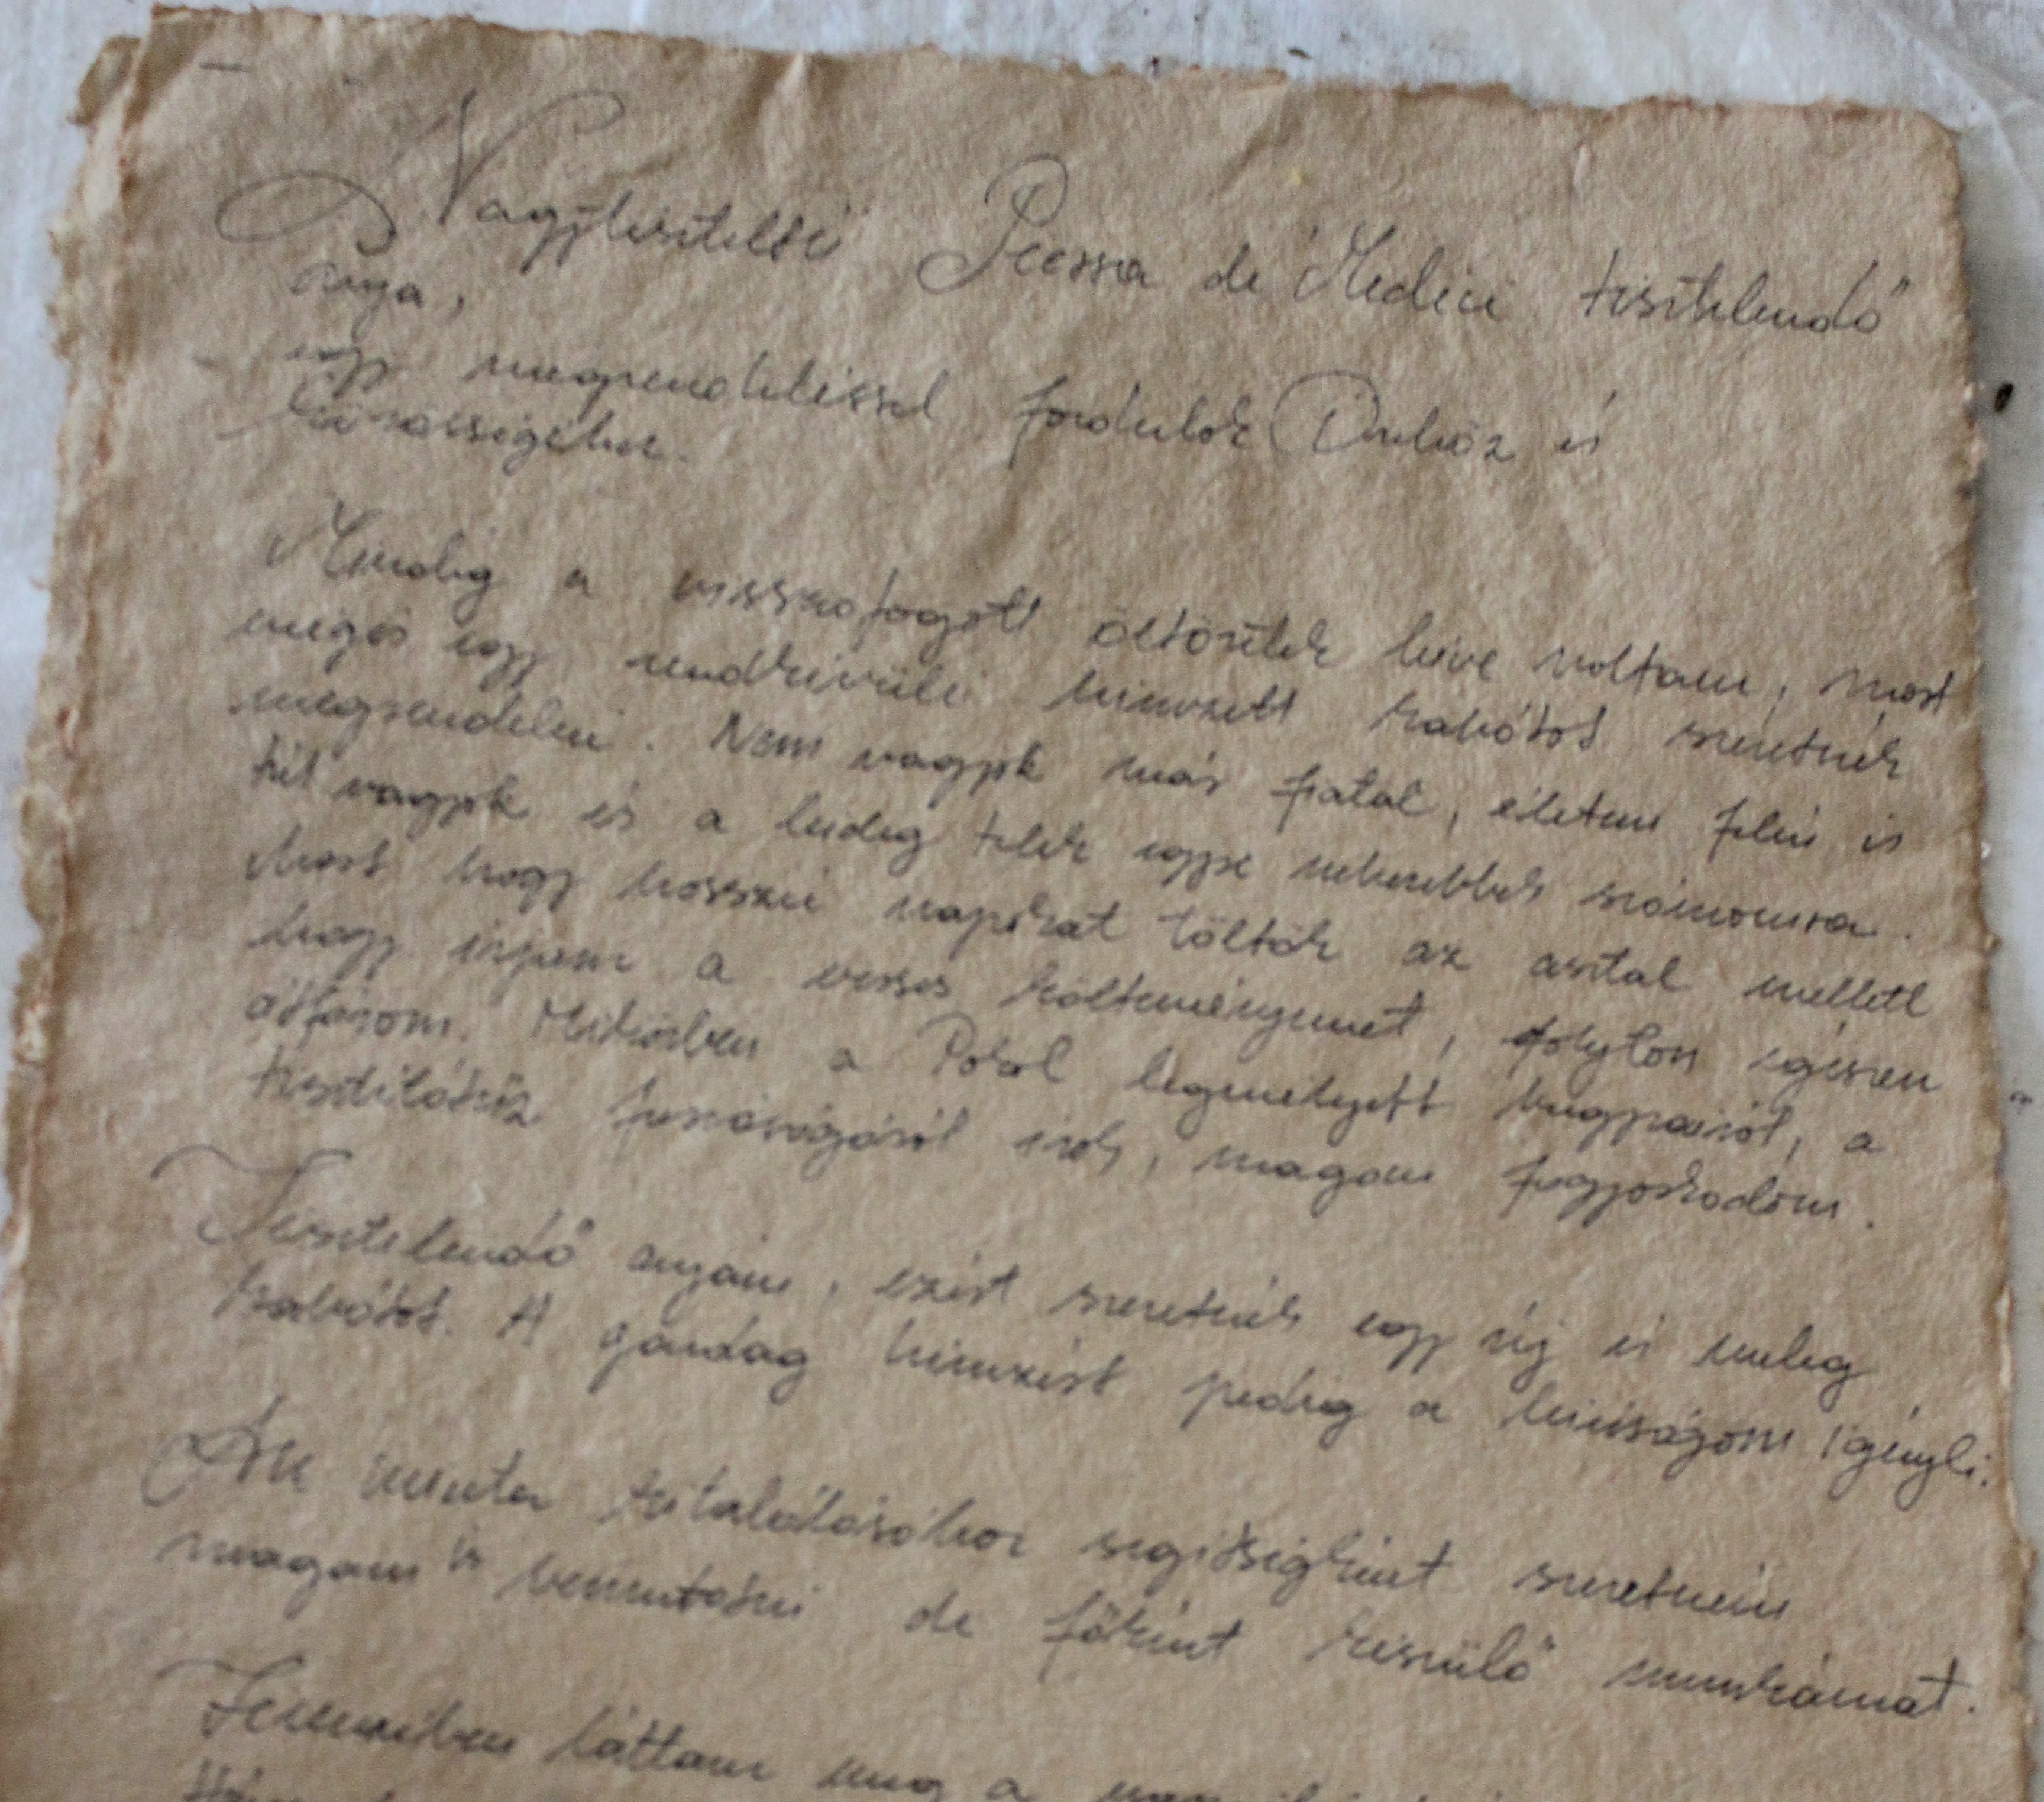 Nagytiszteltű Piessa de' Medici tisztelendő
anya,
egy megrendeléssel fordulok Önhöz és
közösségéhez.
Mindig a visszafogott öltözetek híve voltam, most
mégis egy rendkívüli hímzett kabátot szeretnék
megrendelni. Nem vagyok már fiatal, életem felén is
túl vagyok és a hideg telek egyre nehezebbek számomra.
Most hogy hosszú napokat töltök az asztal mellett
hogy írjam a verses költeményemet, folyton egészen
átfázom. Miközben a Pokol legmélyebb bugyrairól, a
tisztítótűz forróságáról írok, magam fagyoskodom.
Tisztelendő anyám, ezért szeretnék egy új és meleg
kabátot. A gazdag hímzést pedig a hiúságom igényli.
A minta kitalálásához segítségként szeretném
magam is bemutatni de főként készülő munkámat.
Firenzében láttam meg a